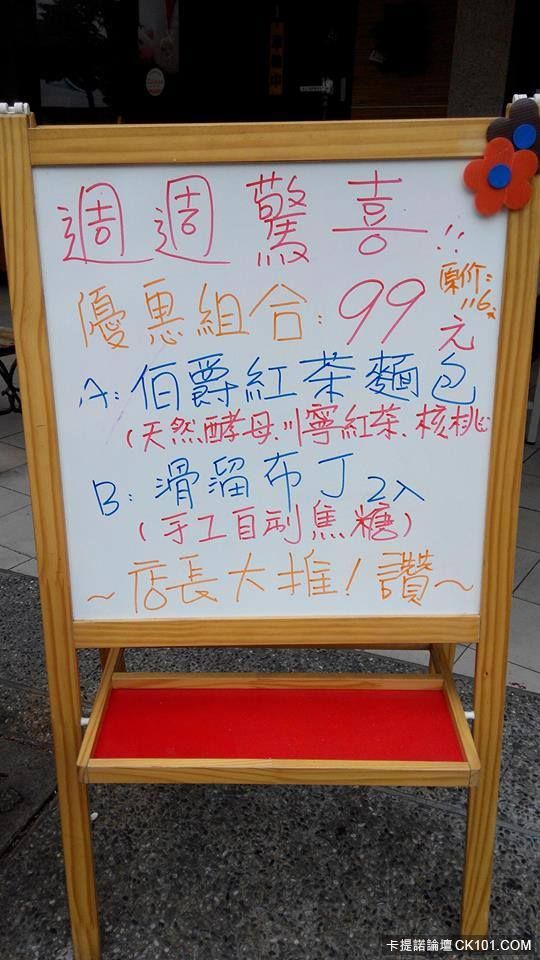 週週驚喜!!
優惠組合:99元
原价:116元
A:伯爵紅茶麵包
(天然酵母.川寧紅茶.核桃)
B:滑溜布丁2入
(手工自制焦糖)
~店長大推!讚~
卡提諾論壇 CK101.COM